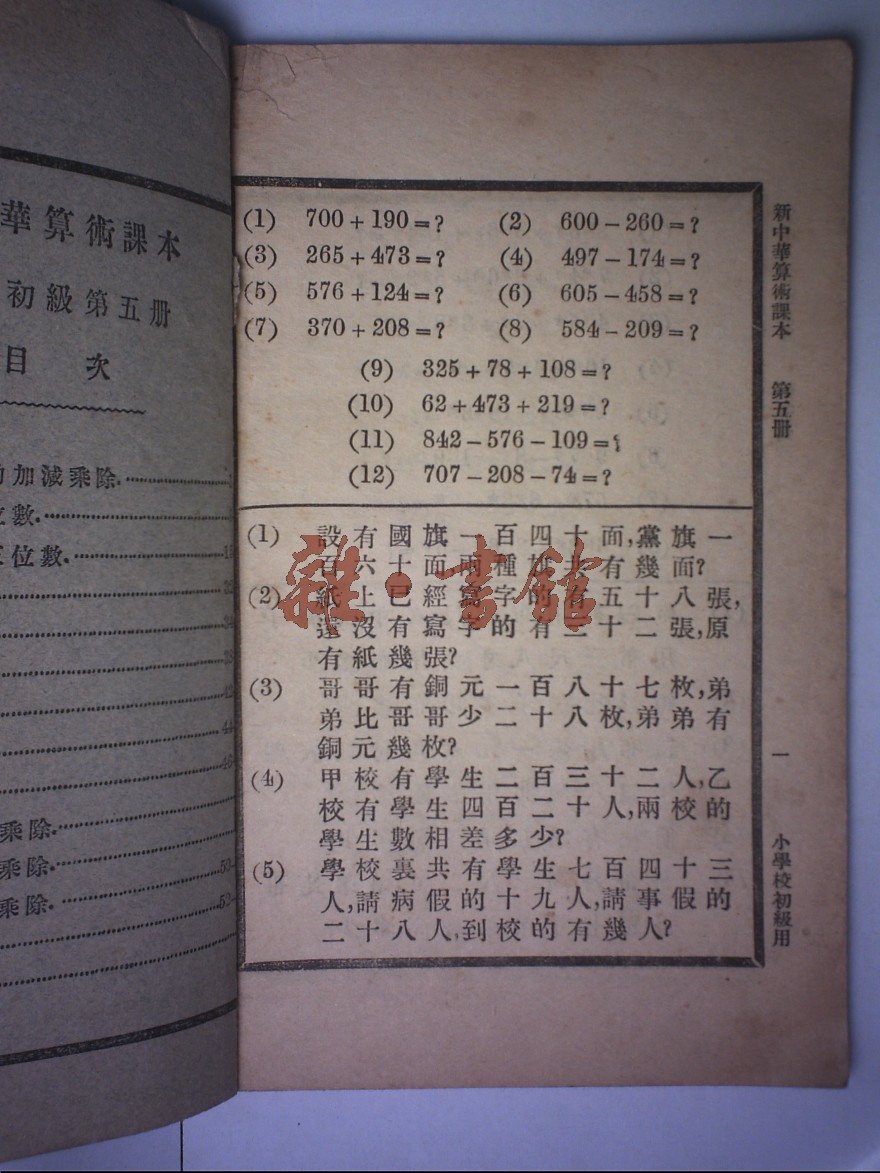 華算術課本
初級第五册
目 次
加減乘除
位數
位數
乘除
乘除
乘除
(1) 700+190=? (2) 600-260=?
(3) 265+473=? (4) 497-174=?
(5) 576+124=? (6) 605-458=?
(7) 370+208=? (8) 584-209=?
(9) 325+78+108=?
(10) 62+473+219=?
(11) 842-576-109=?
(12) 707-208-74=?
(1) 設有國旗一百四十面,黨旗一
百六十面,兩種旗共有幾面?
(2) 紙上已經寫字的有五十八張,
還沒有寫字的有三十二張,原
有紙幾張?
(3) 哥哥有銅元一百八十七枚,弟
弟比哥哥少二十八枚,弟弟有
銅元幾枚?
(4) 甲校有學生二百三十二人,乙
校有學生四百二十人,兩校的
學生數相差多少?
(5) 學校裏共有學生七百四十三
人,請病假的十九人,請事假的
二十八人,到校的有幾人?
新中華算術課本 第五册 一 小學校初級用
雜·書館